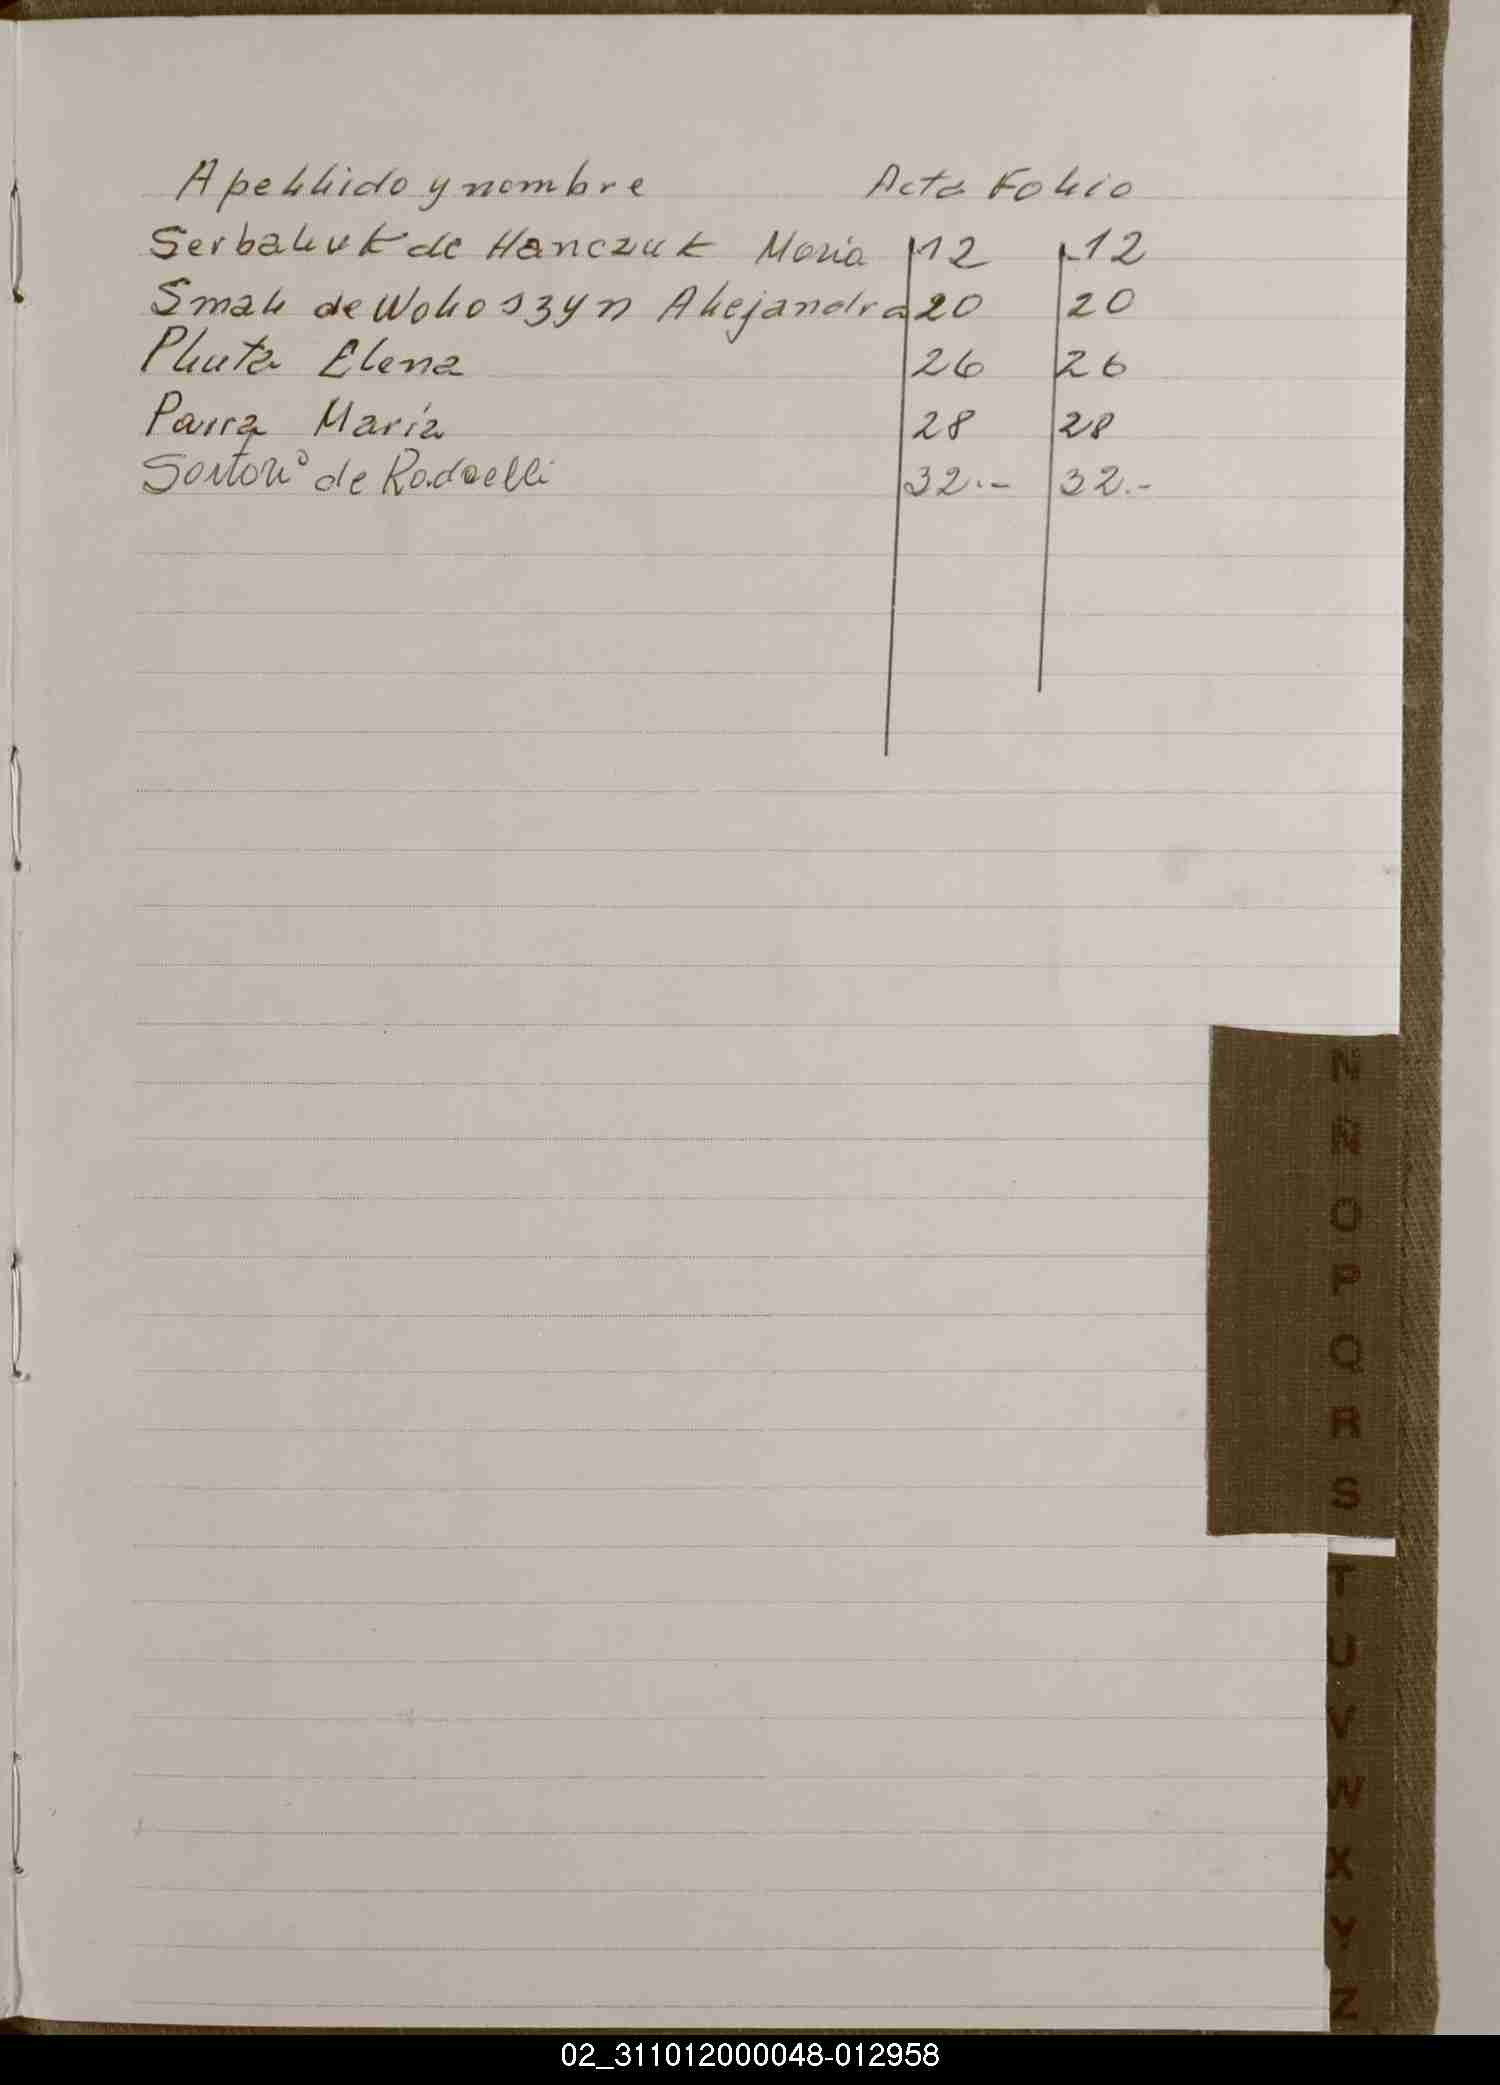 Apellido y nombre Acta Folio
Serbaluk de Hanczuk Maria 12 12
Smal de Woloszyn Alejandra 20 20
Pluta Elena 26 26
Parra María 28 28
Sartori de Radaelli 32.- 32.-
N
Ñ
O
P
Q
R
S
T
U
V
W
X
Y
Z
02_311012000048-012958